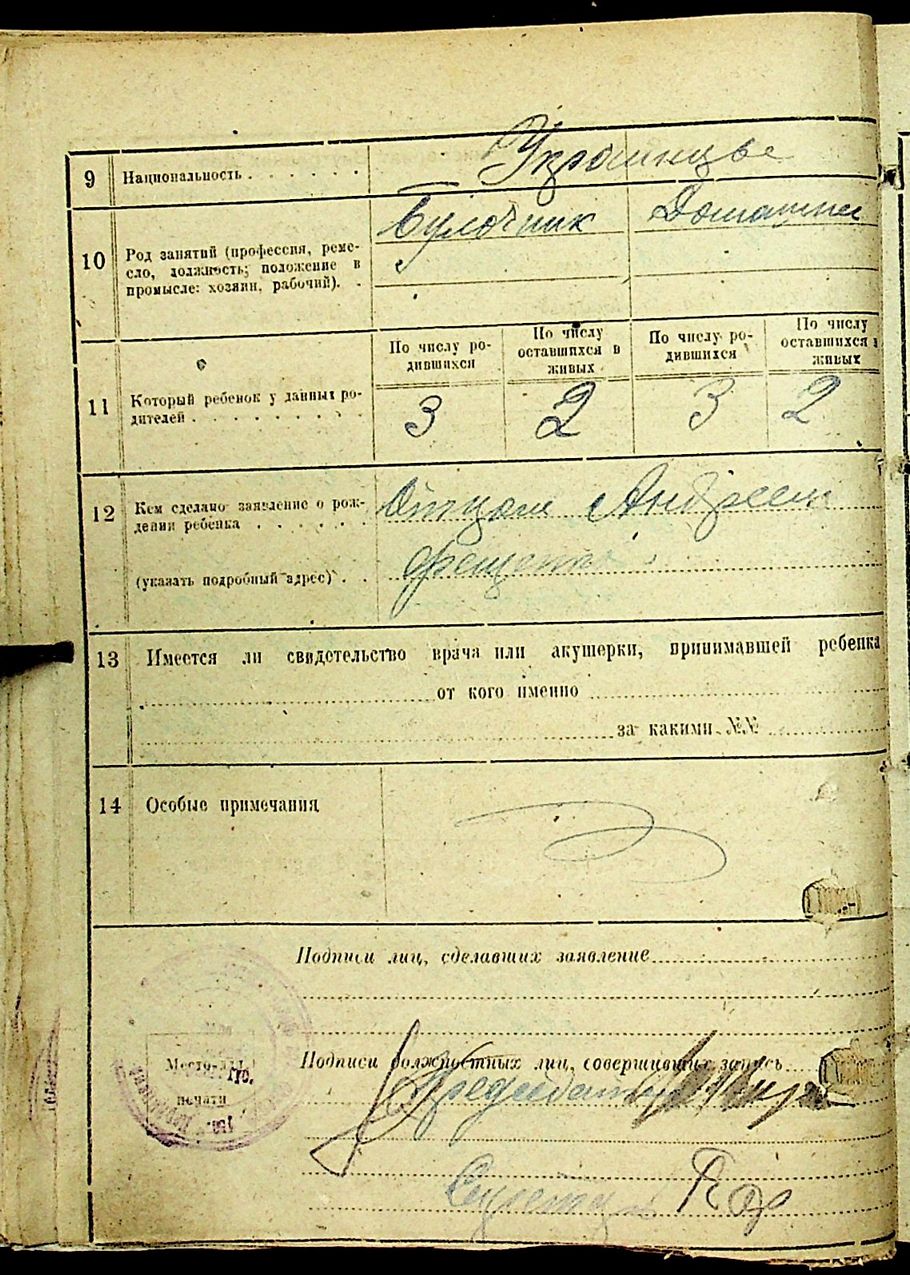 9 Национальность . . . . . . Украинцы
10 Род занятий (профессия, реме-
сло, должность; положение в
промысле: хозяин, рабочий). .
Булочник Домашняя
По числу ро-
дившихся
По числу
оставшихся в
живых
По числу ро-
дившихся
По числу
оставшихся в
живых
11 Который ребенок у данных ро-
дителей . . . . . . . . . .
3 2 3 2
12 Кем сделано заявление о рож-
дении ребенка . . . . . .
(указать подробный адрес) . .
Отцом Андреем
13 Имеется ли свидетельство врача или акушерки, принимавшей ребенка
от кого именно
за какими №№
14 Особые примечания
Подписи лиц, сделавших заявление
Место
печати
Подписи должностных лиц, совершивших запись